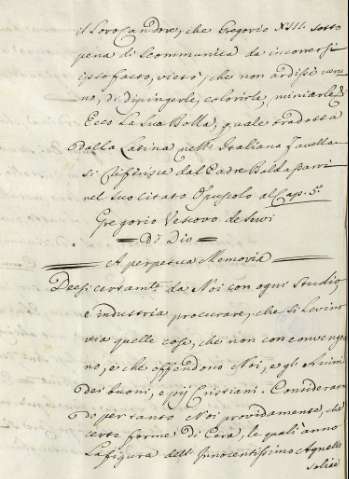 il loro Candore, che Gregorio XIII. sotto
pena di Scommunica da incorrersi
ipso facto, vietò, che non ardisse veru=
no, di dipingerle, colorirle, miniarle &
Ecco la Sua Bolla, quale tradotta
dalla Latina nell' Italiana favella
si riferisce dal Padre Baldassarri
nel suo citato Opuscolo al Cap. 5.º
Gregorio Vescovo de Servi
di Dio
A perpetua Memoria
Deesi certamte. da Noi con ogni Studio
e industria procurare, che si levino
via quelle cose, che non convengo
no, e che offendono Noi, e gli Animi
dei buoni, e pij Cristiani. Consideran
do pertanto Noi providamente, che
certe forme di Cera, le quali anno
la figura dell' Innocentissimo Agnello